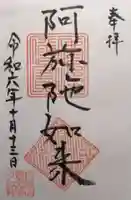 奉拝
阿弥陀如来
令和六年十月十三日